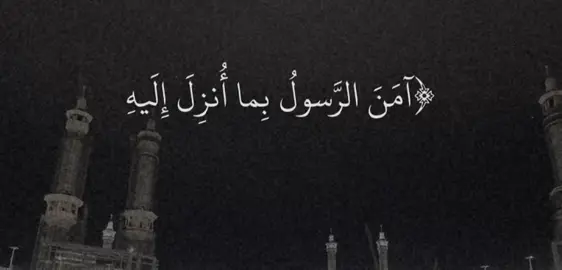 ﴿آمَنَ الرَّسولُ بِما أُنزِلَ إِلَيهِ